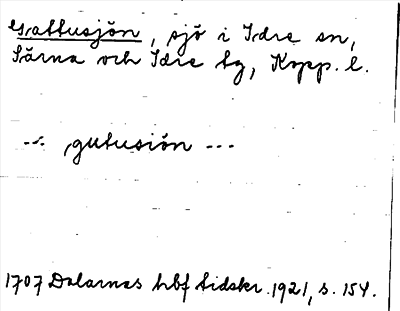 Guttusjön, sjö i Idre sn,
Särna och Idre tg, Kopp. l.
--- gutusiön ---
1707 Dalarnas hbf tidskr. 1921, s. 154.